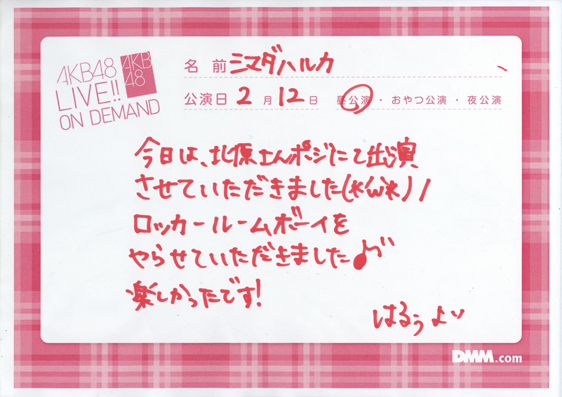 AKB48
LIVE!!
ON DEMAND
AKB
48
名 前 シマダハルカ
公演日 2 月 12 日 昼公演・おやつ公演・夜公演
今日は、北原さんポジにて出演
させていただきました(*´ω`*)ノ
ロッカールームボーイを
やらせていただきました♪
楽しかったです!
はるぅより
DMM.com